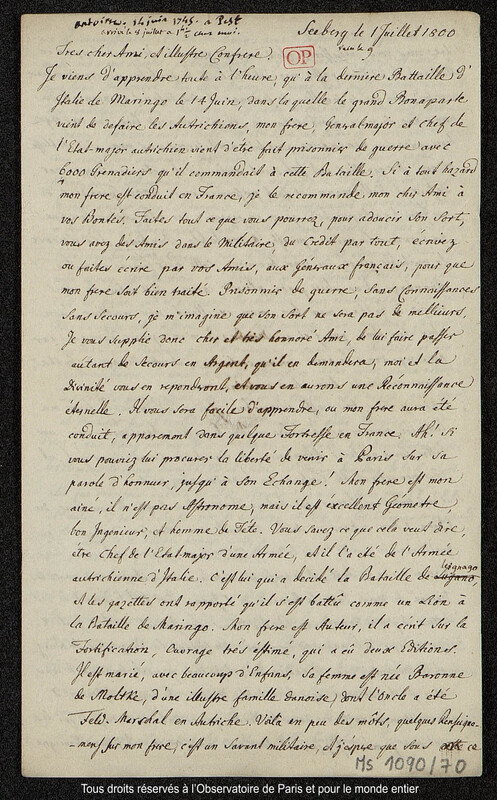 14 juin 1745. a Pest
arrivé le 8 juillet a 1h ½ chez moi.
Seeberg le 1 Juillet 1800
Tres cher Ami, et illustre Confrere.
OP
Je viens d'apprendre toute à l'heure, qu'à la derniere Battaille d'
Italie de Maringo le 14 Juin, dans laquelle le grand Bonaparte
vient de defaire les Autrichiens, mon frere, General-major et chef de
l'Etat-major autrichien vient d'etre fait prisonnier de guerre avec
6000 Grenadiers qu'il commandait à cette Bataille. Si à tout hazard
mon frere est conduit en France, je le recommande, mon cher Ami à
vos Bontés. Faites tout ce que vous pourrez, pour adoucir son sort,
vous avez des Amis dans le Militaire, du Crédit par tout, écrivez
ou faites écrire par vos Amis, aux Géneraux français, pour que
mon frere soit bien traité. Prisonnier de guerre, sans Connaissances
sans Secours, je m'imagine que son sort ne sera pas de meilleurs.
Je vous supplie donc cher et très honnoré Ami, de lui faire passer
autant de secours en Argent, qu'il en demandera, moi et la
Divinité vous en repondront, et vous en aurons une Reconnaissance
éternelle. Il vous sera facile d'apprendre, ou mon frere aura été
conduit, apparemment dans quelque Fortresse en France. Ah! si
vous pouviez lui procurer la liberté de venir à Paris sur sa
parole d'honneur, jusqu'à son Echange! Mon frere est mon
ainé, il n'est pas Astronome, mais il est éxcellent Géometre,
bon Ingenieur, et homme de Tête. Vous savez ce que cela veut dire,
être Chef de l'Etat major d'une Armée, et il l'a été de l'Armée
autrichienne d'Italie. C'est lui qui a decidé la Bataille de legnago
et les gazettes ont rapporté qu'il s'est battû comme un Lion à
la Bataille de Maringo. Mon frere est Auteur, il a écrit sur la
Fortification, Ouvrage très estimé, qui a eû deux Editions.
Il est marié, avec beaucoup d'Enfans, sa femme est née Baronne
de Moltke, d'une illustre famille danoise, dont l'Oncle a été
Feld-Marschal en Autriche. Voilà en peu des môts, quelques Renseigne-
-mens sur mon frere, c'est un savant militaire, et j'éspere que sous ce
Ms 1090/70
Tous droits réservés à l'Observatoire de Paris et pour le monde entier